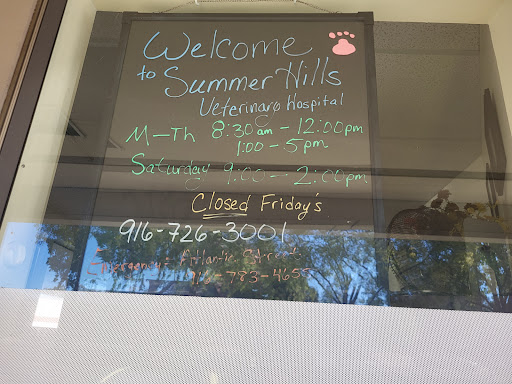 Welcome
to Summer Hills
Veterinary Hospital
M-Th 8:30am - 12:00pm
1:00 - 5pm
Saturday 9:00 - 2:00pm
Closed Friday's
916-726-3001
Emergency: Atlantic Street
916-783-4655